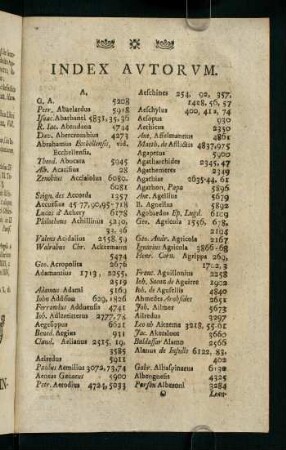 INDEX AVTORVM.
A,
G. A. 5208
Petr. Abaelardus 5918
Isaac. Abarbanel 5831, 35, 36
R. Iac. Abendana 4744
Dav. Abercrombius 4273
Abrahamus Ecchellensis, vid.
Ecchellensis.
Theod. Abucata 5945
Ass. Acacius 28
Zenobius Acciaiolus 6080.
6081
Seign. des Accords 1357
Accursius 45 77, 90, 95-718
Lucas d' Achery 6178
Philotheus Achillinus 5230,
32, 36
Valens Acidalius 2558, 59
Walraduus Chr. Ackermann
5474
Geo. Acropolites 2676
Adamantius 1719, 2255,
2519
Alannus Adami 5169
Ioh. Addison 629, 1826
Ferrandus Adduensis 4741
Ioh. Adlzreiterus 2777, 78
Aegosippus 6621
Beard. Aegius 931
Claud. Aelianus 2515, 19,
3585
Aelredus 5911
Paulus Aemilius 3072, 73, 74
Aeneas Gazaeus 5900
Petr. Aerodius 4724, 5033
Aeschines 254, 92, 357,
1428, 56, 57
Aeschylus 400, 412, 74
Aesopus 930
Aethicus 2350
Ant. Aesselmaterus 4861
Matth. de Afflictis 4837, 975
Agapetus 5900
Agatharchides 2345, 47
Agathemerus 2349
Agathias 2635-44, 61
Agathon, Papa 5896
Ant. Agellius 5679
R. Agnellus 5892
Agobardus Ep. Lugd. 6109
Geo. Agricola 1556, 678,
2101
Geo. Andr. Agricola 2167
Ignatius Agricola 5866-68
Henr. Corn. Agrippa 269,
1702, 3
Franc. Aguillonius 2258
Ios. Saenz de Aguirre 1902
Iob. de Agusellis 4840
Ahmedes Arabsides 2652
Ioh. Ailmer 5673
Alardus 3297
Leo ab Alczema 3218, 55. 61
Iac. Alandus 3660
Baldassar Alamo 2566
Alanus de Insulis 6122, 83,
402
Gabr. Albaspinaeus 6130
Albengensis 4325
Porfen Alberoni 3284
Leon-